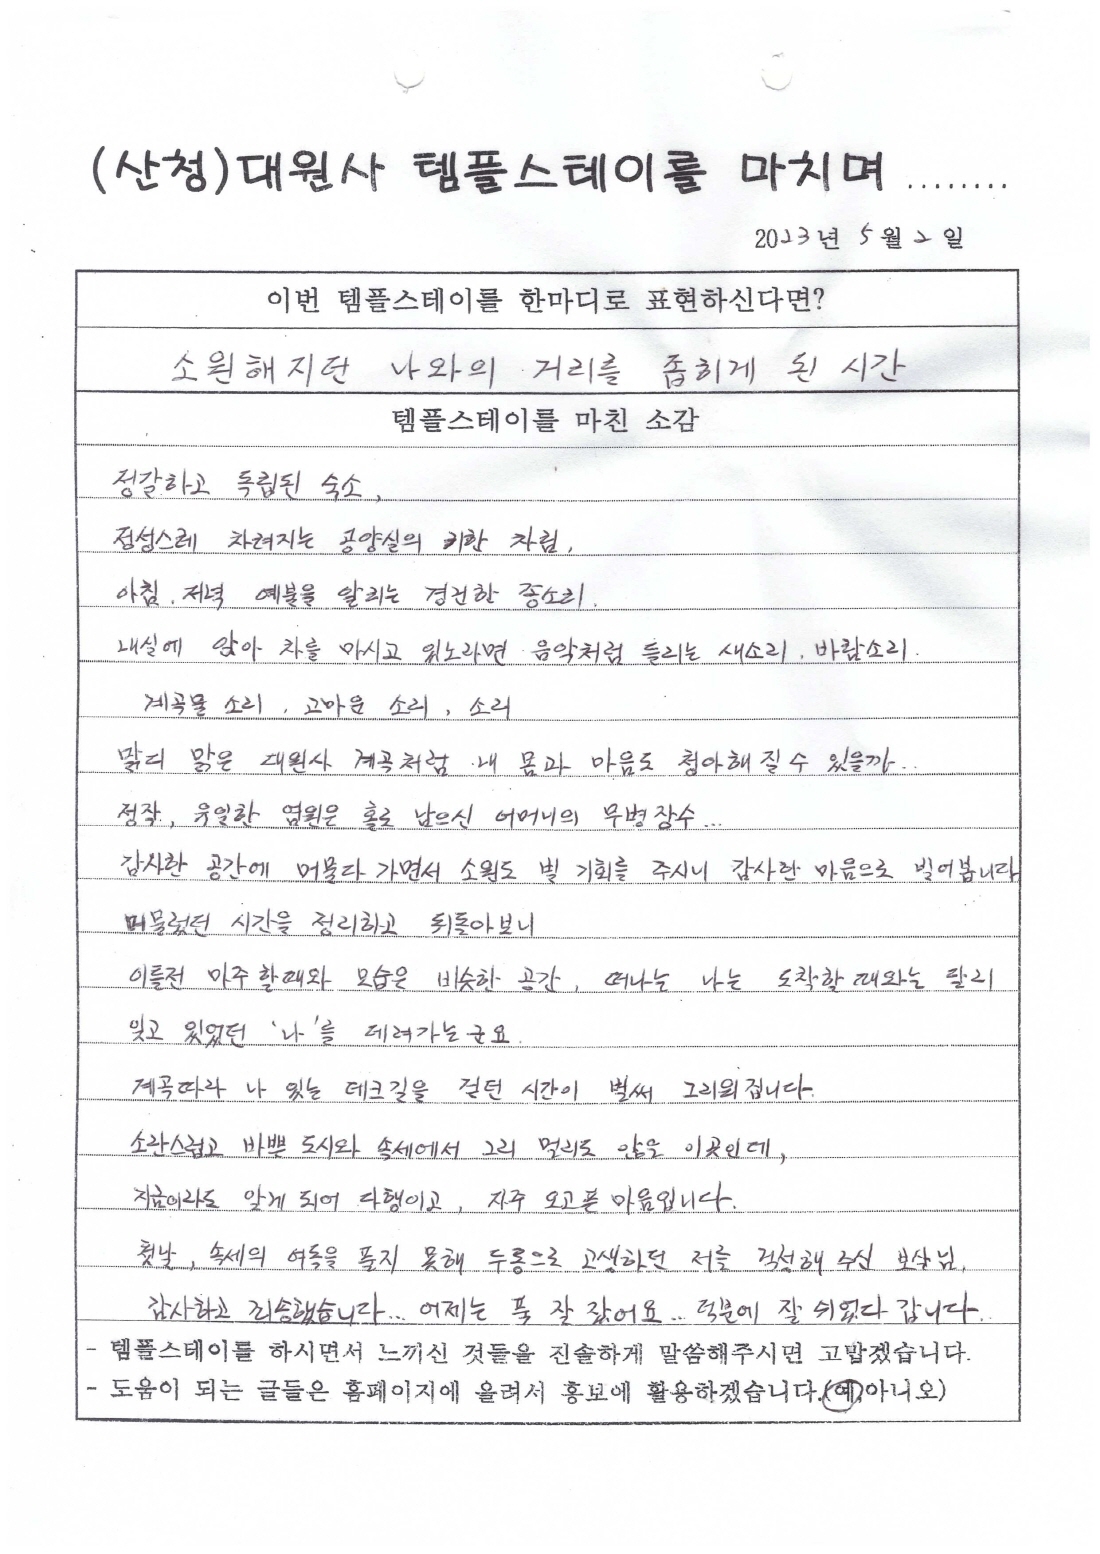 (산청)대원사 템플스테이를 마치며 ........
2023년 5월 2일
이번 템플스테이를 한마디로 표현하신다면?
소원해지던 나와의 거리를 좁히게 된 시간
템플스테이를 마친 소감
정갈하고 독립된 숙소,
정성스레 차려지는 공양실의 귀한 차림,
아침, 저녁 예불을 알리는 경건한 종소리.
내실에 앉아 차를 마시고 있노라면 음악처럼 들리는 새소리, 바람소리.
계곡물 소리, 고마운 소리, 소리
맑디 맑은 대원사 계곡처럼 내 몸과 마음도 청아해 질 수 있을까..
정작, 유일한 염원은 홀로 남으신 어머니의 무병장수...
감사한 공간에 머물다 가면서 소원도 빌 기회를 주시니 감사한 마음으로 빌어봅니다
머물렀던 시간을 정리하고 뒤돌아보니
이틀전 마주할때와 모습은 비슷한 공간, 떠나는 나는 도착할 때와는 달리
잊고 있었던 '나'를 데려가는군요.
계곡따라 나 있는 데크길을 걷던 시간이 벌써 그리워집니다.
소란스럽고 바쁜 도시와 속세에서 그리 멀리도 않은 이곳인데,
지금이라도 알게 되어 다행이고, 자주 오고픈 마음입니다.
첫날, 속세의 여독을 풀지 못해 두통으로 고생하던 저를 걱정해 주신 보살님,
감사하고 죄송했습니다... 어제는 푹 잘 잤어요... 덕분에 잘 쉬었다 갑니다.
- 템플스테이를 하시면서 느끼신 것들을 진솔하게 말씀해주시면 고맙겠습니다.
- 도움이 되는 글들은 홈페이지에 올려서 홍보에 활용하겠습니다.(예,아니오)